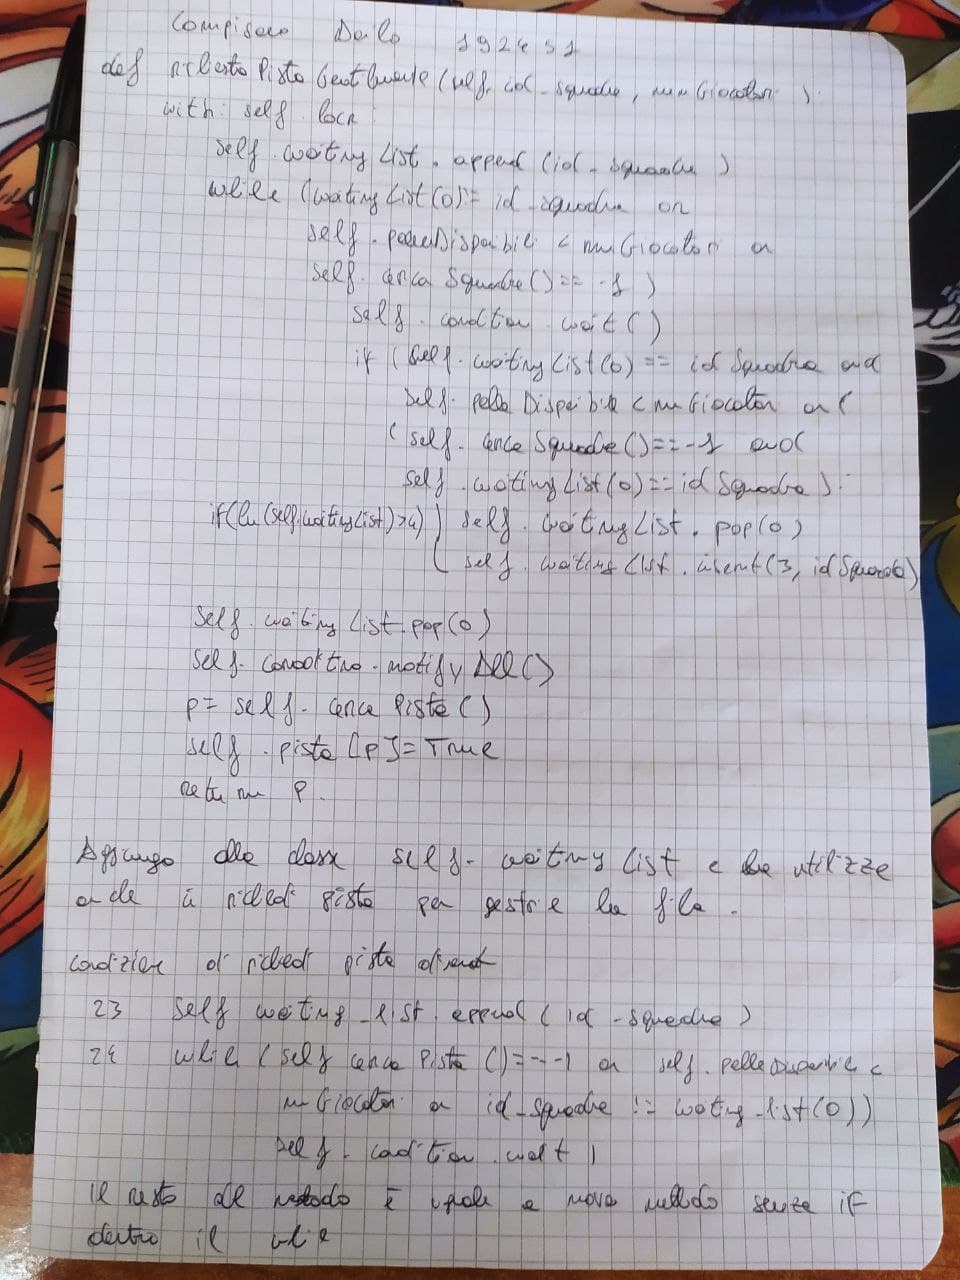 Compisano Danilo 192451
def richiestaPistaGentilmente (self, id_squadra, numGiocatori):
with self.lock
self.waitingList.append (id_squadra)
while (waitingList(0)!= id_squadra or
self.palleDisponibili < numGiocatori or
self.cercaSquadre()== -1 )
self.condition.wait()
if (self.waitingList(0) == idSquadra and
self.palleDisponibile < numGiocatori or (
(self.cercaSquadre()==-1 and
self.waitingList(0)==idSquadra):
if(len(self.waitingList)>4) self.waitingList.pop(0)
self.waitingList.insert(3, idSquadra)
self.waitingList.pop(0)
self.condition.notifyAll()
p= self.cercaPista()
self.pista[p]=True
return p.
Aggiungo alla classe self.waiting list e la utilizzo
anche in richiedi pista per gestire la fila.
condizione di richiedi pista diventa
23 self waiting_list.append (id_squadra)
24 while (self cerca Pista ()==-1 or self.palleDisponibile <
numGiocatori or id_squadra != waiting_list(0))
self.condition.wait )
il resto del metodo è uguale a nuovo metodo senza if
dentro il while